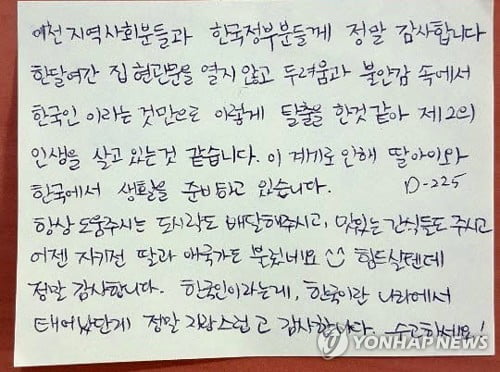 이천 지역사회분들과 한국정부분들께 정말 감사합니다
한달여간 집 현관문을 열지 않고 두려움과 불안감 속에서
한국인 이라는 것만으로 이렇게 탈출을 한것 같아 제2의
인생을 살고 있는것 같습니다. 이 계기로 인해 딸아이와
한국에서 생활을 준비하고 있습니다. D-225
항상 도움주시는 도시락도 배달해주시고, 맛있는 간식들도 주시고
어젠 자기전 딸과 애국가도 불렀네요 힘드실텐데
정말 감사합니다. 한국인이라는게, 한국이란 나라에서
태어났단게 정말 자랑스럽고 감사합니다. 수고하세요!
YONHAPNEWS